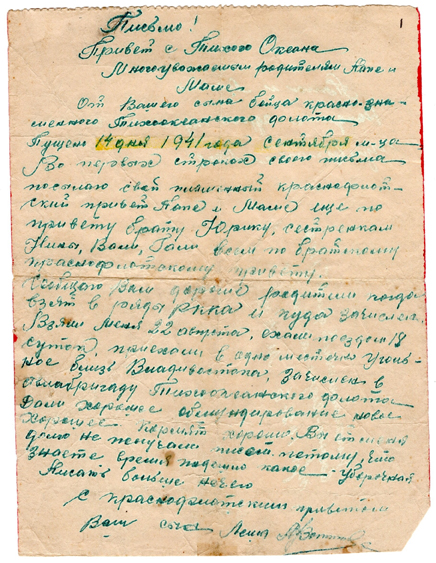 1
Письмо!
Привет с Тихого Океана
Многоуважаемым родителям Папе и
Маме
От Вашего сына бойца краснозна-
менного Тихоокеанского флота
Пущено 14 дня 1941 года сентября м-ца
Во первых строках своего письма
посылаю свой пламенный краснофлот-
ский привет Папе и Маме еще по
привету брату Юрику, сестренкам
Нины, Вали, Гали всем по братскому
краснофлотскому привету.
Вам дорогие родители когда
взят в ряды РККА и куда зачислен
Взяли меня 22 августа, ехали поездом 18
суток, приехали в одно местечко Уголь-
ное близь Владивостока, зачислен в
авиабригаду Тихоокеанского флота
Дали хорошее обмундирование новое
хорошее кормят хорошо. Вы от меня
долго не получали писем потому, что
знаете время подошло какое - уборочная
Писать больше нечего
с краснофлотским приветом
Ваш сын Леша